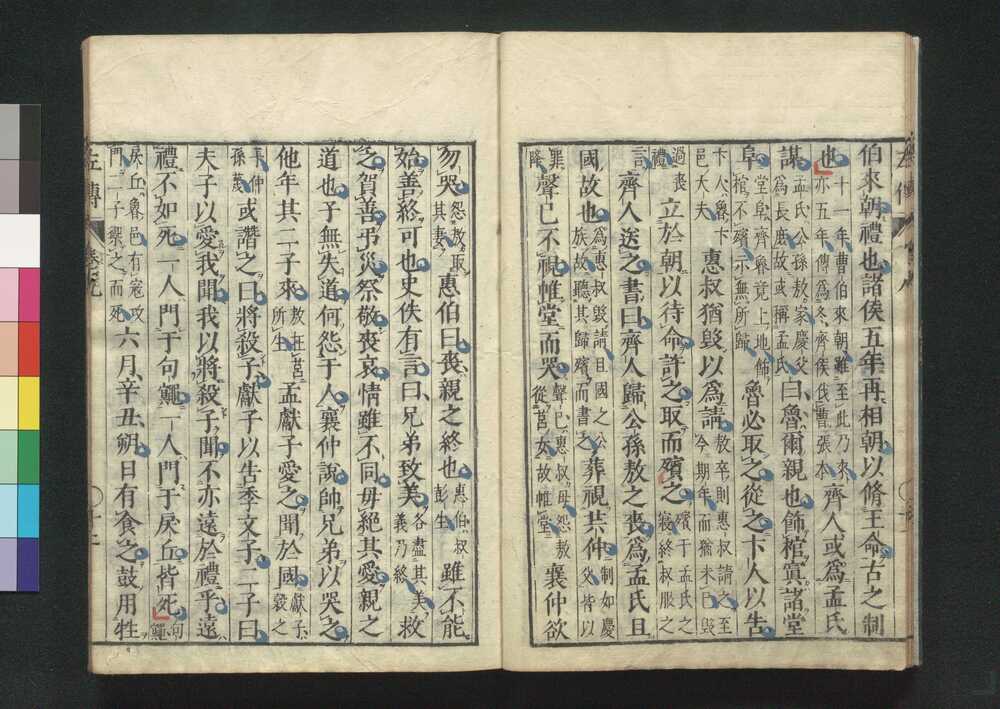 伯來朝禮也諸侯五年再相朝以脩王命古之制
也十一年曹伯來朝雖至此乃來亦五年傳爲冬齊侯伐曹張本齊人或爲孟氏
謀孟氏公孫敖家慶父爲長庶故或稱孟氏曰魯爾親也飾棺寘諸堂
阜堂阜齊魯竟上地飾棺不殯示無所歸魯必取之從之卞人以告
卞人魯卞邑大夫惠叔猶毀以爲請敖卒則惠叔請之至今期年而猶未已毀
過喪禮立於朝以待命許之取而殯之殯于孟氏之寢終叔服之
言齊人送之書曰齊人歸公孫敖之喪爲孟氏且
國故也爲惠叔毀請且國之公族故聽其歸殯而書之葬視共仲制如慶父皆以
罪降聲已不視帷堂而哭聲已惠叔母怨敖從莒女故帷堂襄仲欲
勿哭怨敖取其妻惠伯曰喪親之終也惠伯叔彭生雖不能
始善終可也史佚有言曰兄弟致美各盡其美義乃終救
之賀善弔災祭敬喪哀情雖不同毋絕其愛親之
道也子無失道何怨于人襄仲說帥兄弟以哭之
他年其二子來敖在莒所生孟獻子愛之聞於國獻子穀之
子仲孫蔑或譖之曰將殺子獻子以告季文子二子曰
夫子以愛我聞我以將殺子聞不亦遠於禮乎遠
禮不如死一人門于句鼆一人門于戾丘皆死句鼆
戾丘魯邑有寇攻門二子禦之而死六月辛丑朔日有食之鼓用牲
左傳
卷九